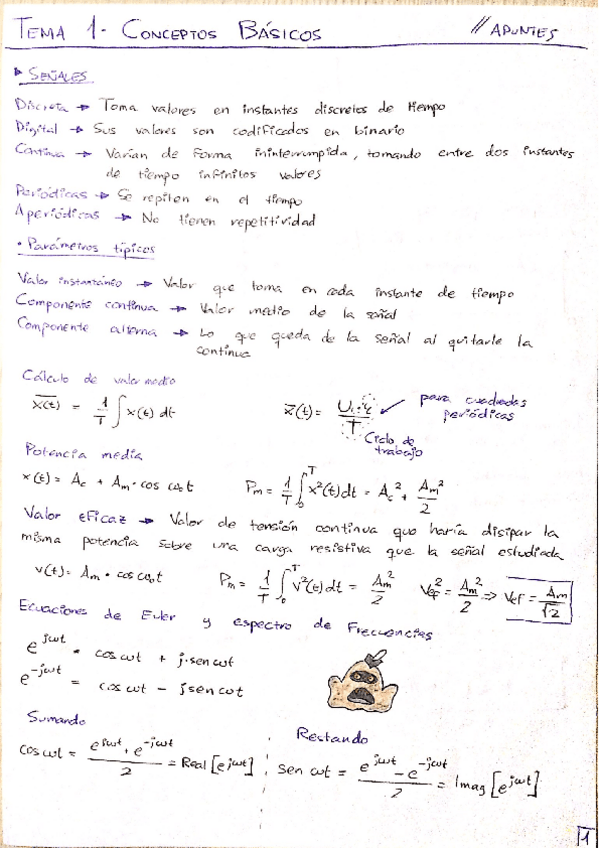 TEMA 1- CONCEPTOS BÁSICOS // APUNTES
▸ SEÑALES
Discreta → Toma valores en instantes discretos de tiempo
Digital → Sus valores son codificados en binario
Continua → Varían de forma ininterrumpida, tomando entre dos instantes
de tiempo infinitos valores
Periódicas → Se repiten en el tiempo
Aperiódicas → No tienen repetitividad
• Parámetros típicos
Valor instantáneo → Valor que toma en cada instante de tiempo
Componente continua → Valor medio de la señal
Componente alterna → Lo que queda de la señal al quitarle la
continua
Cálculo de valor medio
x(t) = 1/T ∫ x(t) dt x(t) = U₁·τ/T para cuadradas
periódicas
Ciclo de
trabajo
Potencia media
x(t) = Ac + Am · cos ω₀t Pm = 1/T ∫₀ᵀ x²(t) dt = Ac² + Am²/2
Valor eficaz → Valor de tensión continua que haría disipar la
misma potencia sobre una carga resistiva que la señal estudiada
v(t) = Am · cos ω₀t Pm = 1/T ∫₀ᵀ v²(t) dt = Am²/2 Vef² = Am²/2 ⇒ Vef = Am/√2
Ecuaciones de Euler y espectro de Frecuencias
e^jωt = cos ωt + j·sen ωt
e^-jωt = cos ωt - j sen ωt
Sumando Restando
cos ωt = e^jωt + e^-jωt / 2 = Real [e^jωt] sen ωt = e^jωt - e^-jωt / 2 = Imag [e^jωt]
1